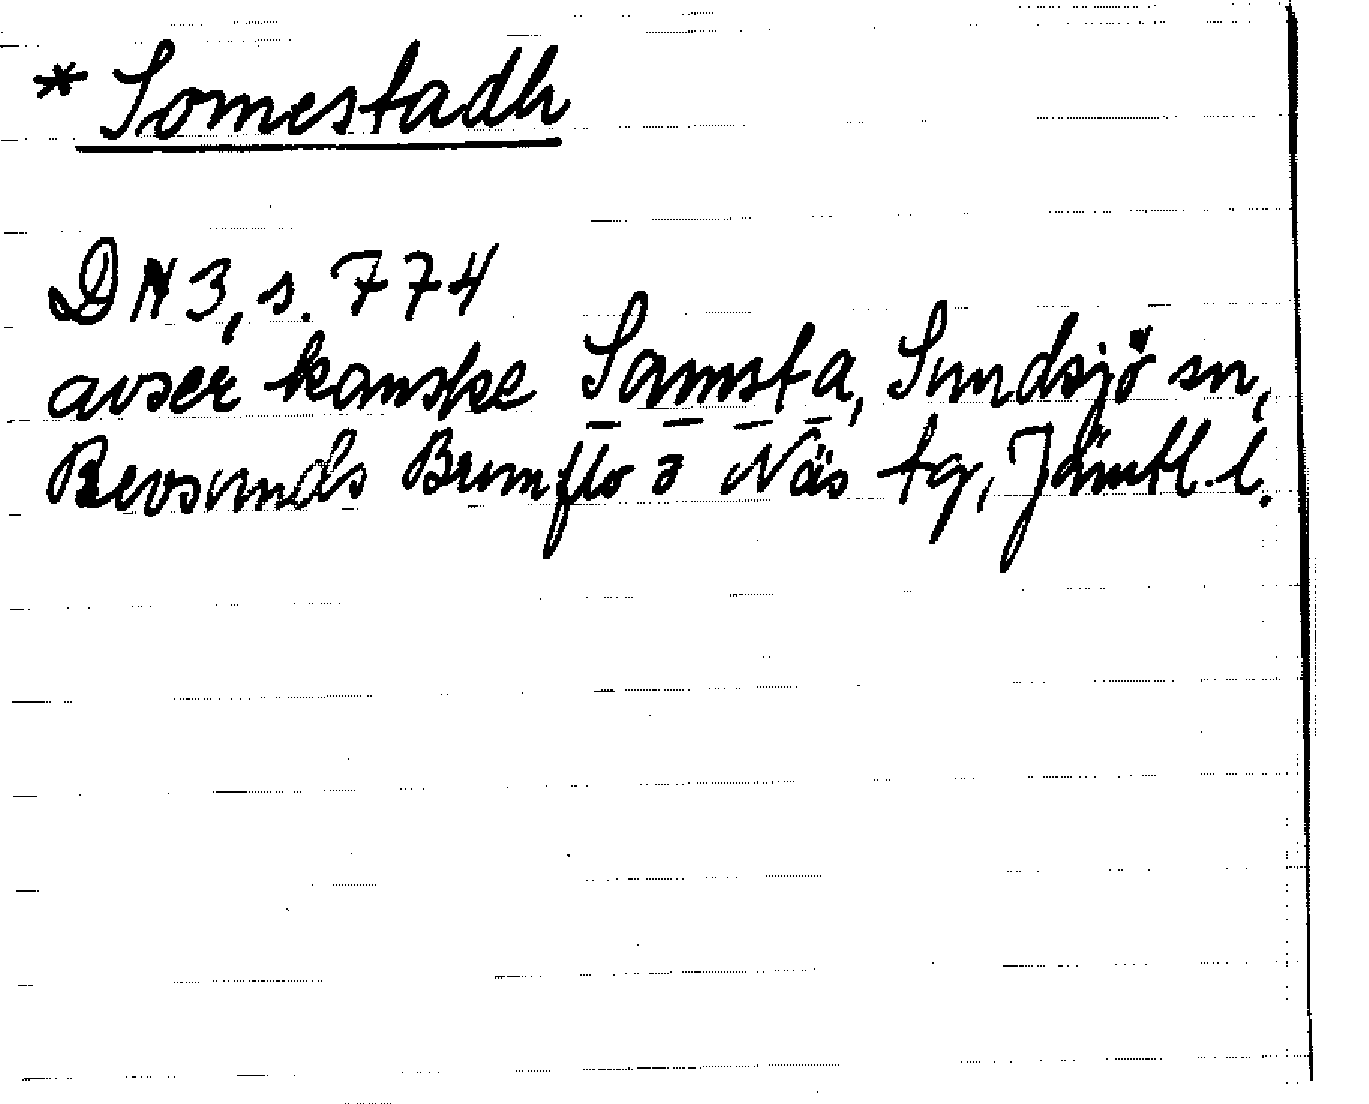 * Somestadh
DN 3, s. 774
avser kanske Samsta, Sundsjö sn,
Revsunds Brunflo o Näs tg, Jämtl. l.